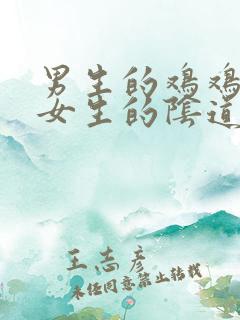 男生的鸡鸡
女生的陰道
王志彦
未经同意禁止转载